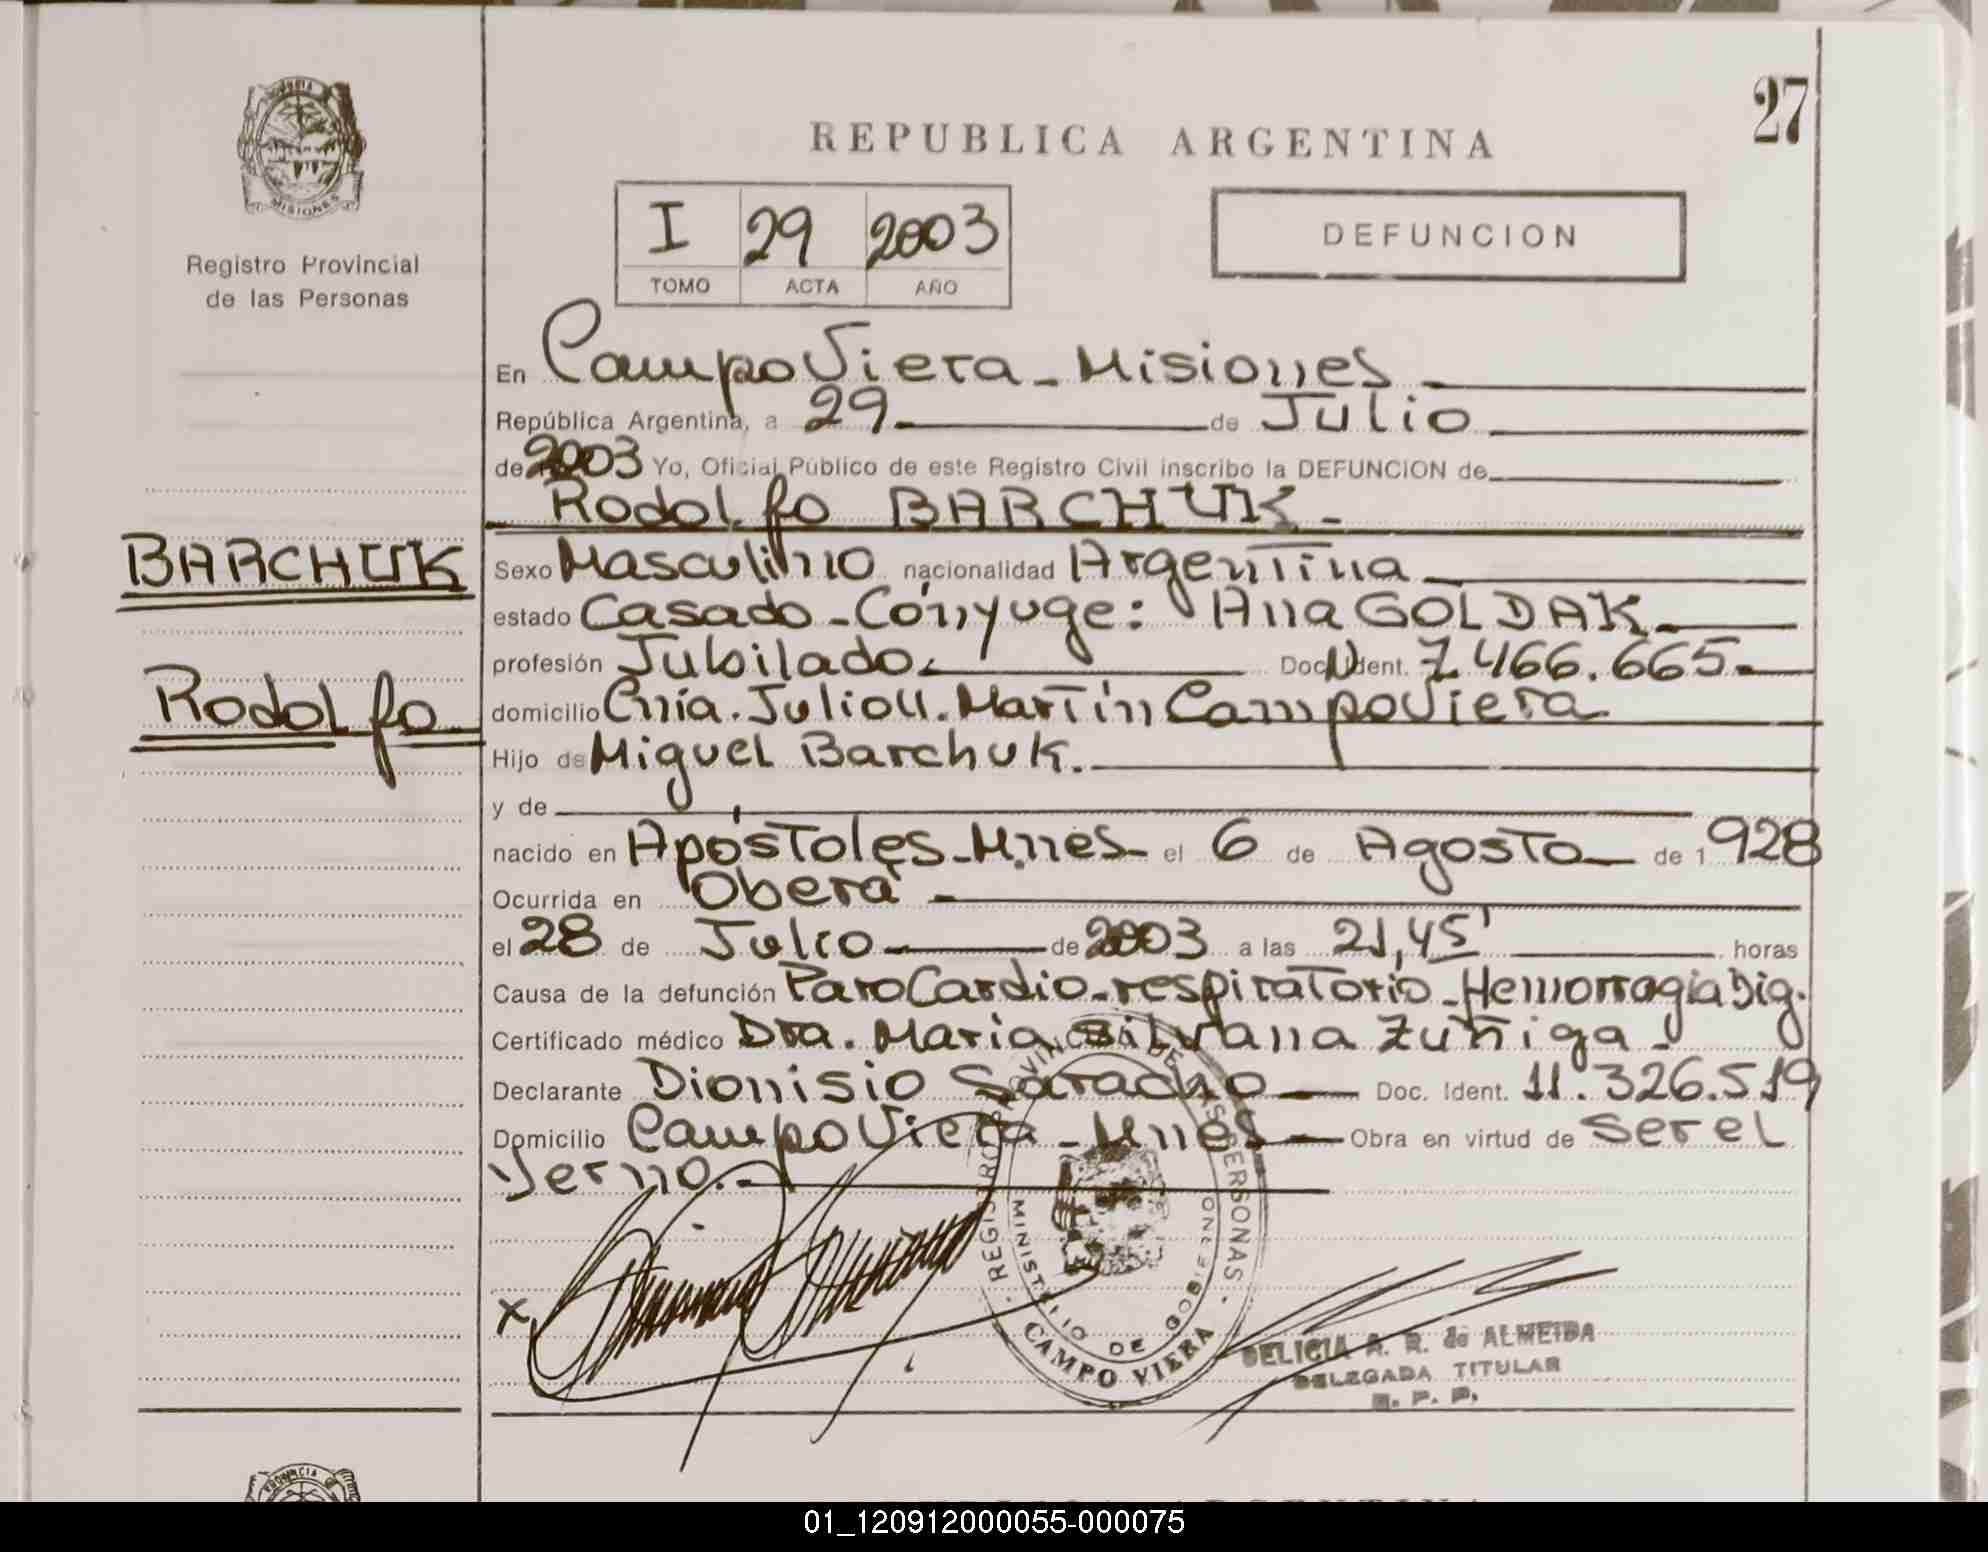 27
PROVINCIA
MISIONES
Registro Provincial
de las Personas
REPUBLICA ARGENTINA
I 29 2003
TOMO ACTA AÑO
DEFUNCION
En Campo Viera - Misiones
República Argentina, a 29 de Julio
de 2003 Yo, Oficial Público de este Registro Civil inscribo la DEFUNCION de
Rodolfo BARCHUK -
BARCHUK
Rodolfo
Sexo Masculino nacionalidad Argentina
estado Casado - Cónyuge: Ana GOLDAK
profesión Jubilado. Doc. Ident. N 7.466.665.
domicilio Cnia. Julio U. Martín Campo Viera
Hijo de Miguel Barchuk.
y de
nacido en Apóstoles - Mnes - el 6 de Agosto de 1928
Ocurrida en Oberá -
el 28 de Julio de 2003 a las 21,45' horas
Causa de la defunción Paro Cardio-respiratorio - Hemorragia Dig.
Certificado médico Dra. Maria Silvana Zuñiga -
Declarante Dionisio Saracho Doc. Ident. 11.326.519
Domicilio Campo Viera - Mnes - Obra en virtud de Ser el
Yerno. -
x
REGISTRO PROVINCIAL DE LAS PERSONAS
MINISTERIO DE GOBIERNO
CAMPO VIERA
DELICIA A. R. de ALMEIDA
DELEGADA TITULAR
R. P. P.
PROVINCIA
REPUBLICA ARGENTINA
01_120912000055-000075